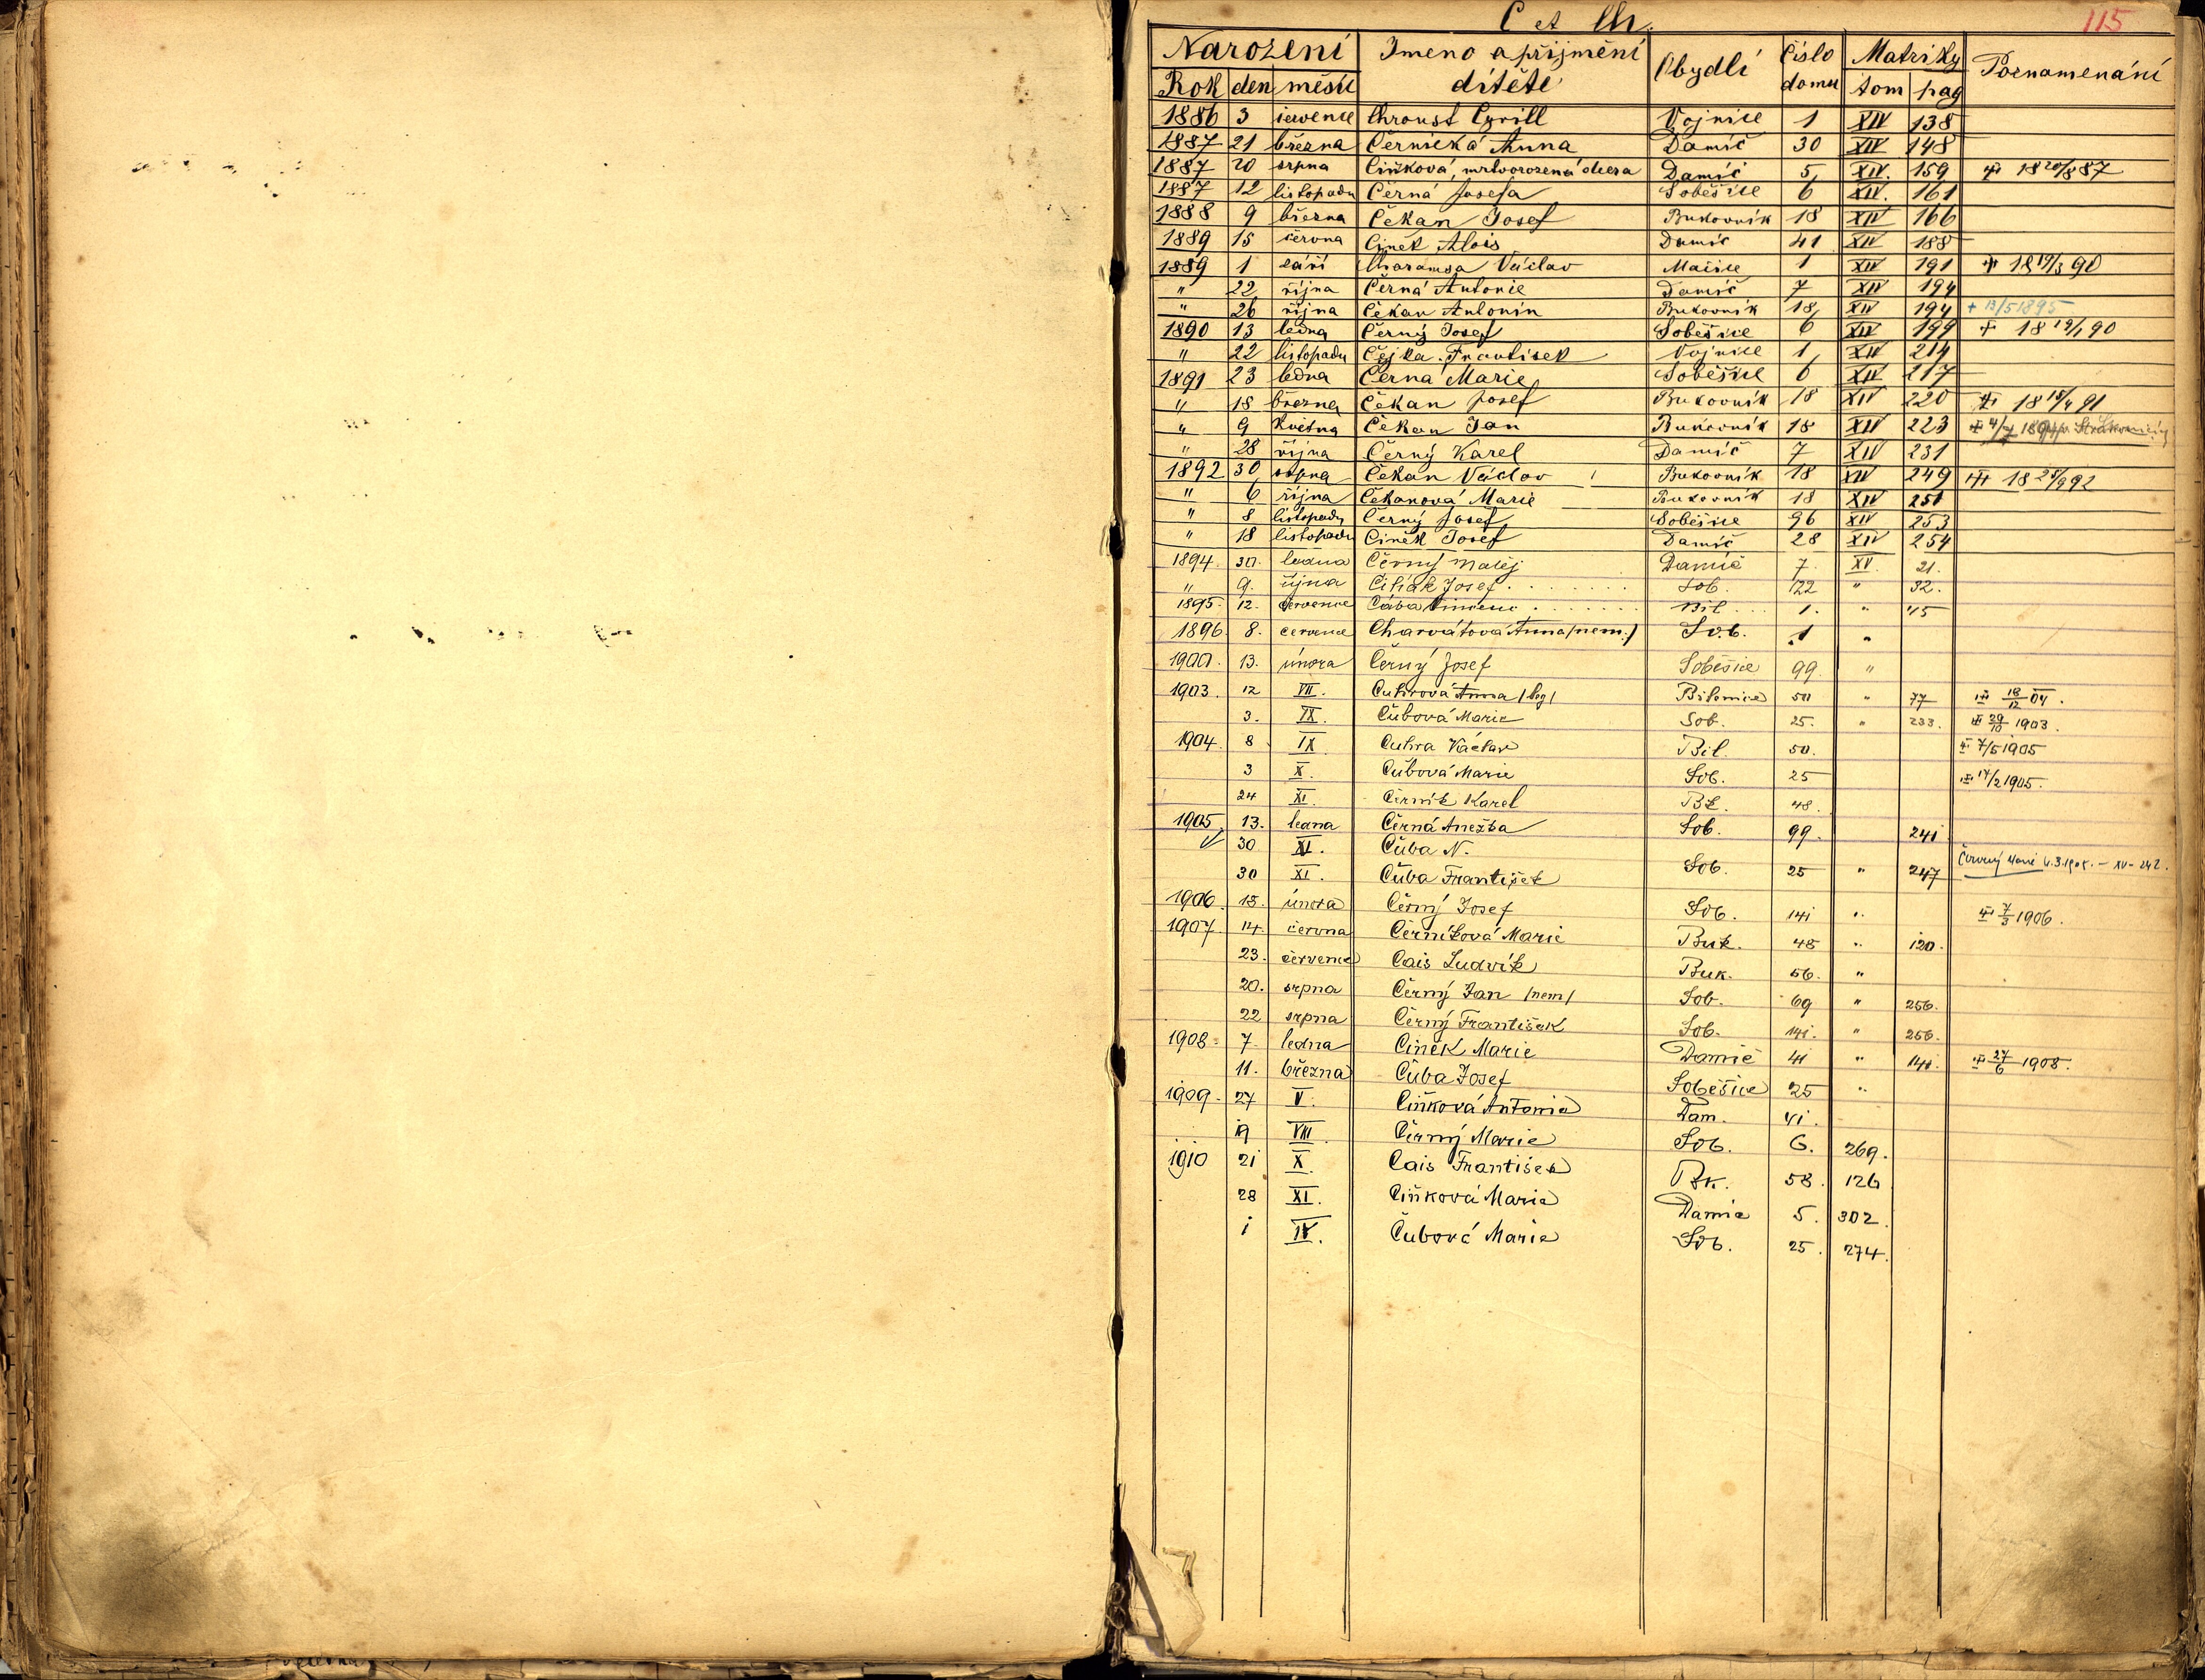 C et Ch.
115
Narození Jmeno a přijmění Obydlí Číslo Matriky Poznamenání
Rok den měsíc dítěte domu tom pag
1886 3 července Chroust Cyrill Vojnice 1 XIV 138
1887 21 března Černická Anna Damíč 30 XIV 148
1887 20 srpna Ciňková, mrtvorozená dcera Damíč 5 XIV. 159 18 20/8 87
1887 12 listopadu Černá Josefa Soběšice 6 XIV. 161
1888 9 března Čekan Josef Bukovník 18 XIV 166
1889 15 června Cinek Alois Damíč 41 XIV 188
1889 1 září Charamsa Václav Mačice 1 XIV 191 18 19/3 90
" 22 října Černá Antonie Damíč 7 XIV 194
" 26 října Čekan Antonín Bukovník 18 XIV 194 + 13/5 1895
1890 13 ledna Černý Josef Soběšice 6 XIV 199 + 18 19/1 90
" 22 listopadu Čejka František Vojnice 1 XIV 214
1891 23 ledna Černá Marie Soběšice 6 XIV 217
" 18 března Čekan Josef Bukovník 18 XIV 220 18 18/4 91
" 9 Května Čekan Jan Bukovník 18 XIV 223
" 28 října Černý Karel Damíč 7 XIV 231
1892 30 srpna Čekan Václav Bukovník 18 XIV 249 18 28/9 92
" 6 října Čekanová Marie Bukovník 18 XIV 251
" 8 listopadu Černý Josef Soběšice 96 XIV 253
" 18 listopadu Cinek Josef Damíč 28 XIV 254
1894. 30. ledna Černý Matěj Damíč 7. XV. 21.
" 9. října Čihák Josef Sob. 122 " 32.
1895. 12. července Cába Vincenc Bil 1. " 45
1896. 8. července Charvátová Anna /nem./ Sob. 1 "
1900. 13. února Černý Josef Soběšice 99. "
1903. 12 VII. Cuhrová Anna /leg/ Bilenice 50 " 77 18/12 04.
3. IX. Čubová Marie Sob. 25. " 233. 29/10 1903.
1904. 8 IX. Cuhra Václav Bil. 50. 7/5 1905
3 X. Čubová Marie Sob. 25 14/2 1905.
24 XI. Černík Karel Bk. 48.
1905. 13. ledna Černá Anežka Sob. 99. 241
30 XI. Čuba N.
30 XI. Čuba František Sob. 25 " 247 Červený 4.3.1905. – XV – 242.
1906. 15. února Černý Josef Sob. 141 " 7/3 1906.
1907. 14. června Černíková Marie Buk. 48 " 120.
23. července Cais Ludvík Buk. 56. "
20. srpna Černý Jan /nem/ Sob. 69 " 256.
22 srpna Černý František Sob. 141. " 256.
1908. 7. ledna Cinek Marie Damíč 41 " 141. 27/6 1908.
11. března Čuba Josef Soběšice 25 "
1909. 27 V. Ciňková Antonie Dam. 41.
19 VIII. Černý Marie Sob. 6. 269.
1910 21 X. Cais František Bk. 58. 126
28 XI. Ciňková Marie Damíč 5. 302.
1 IV. Čubová Marie Sob. 25. 274.